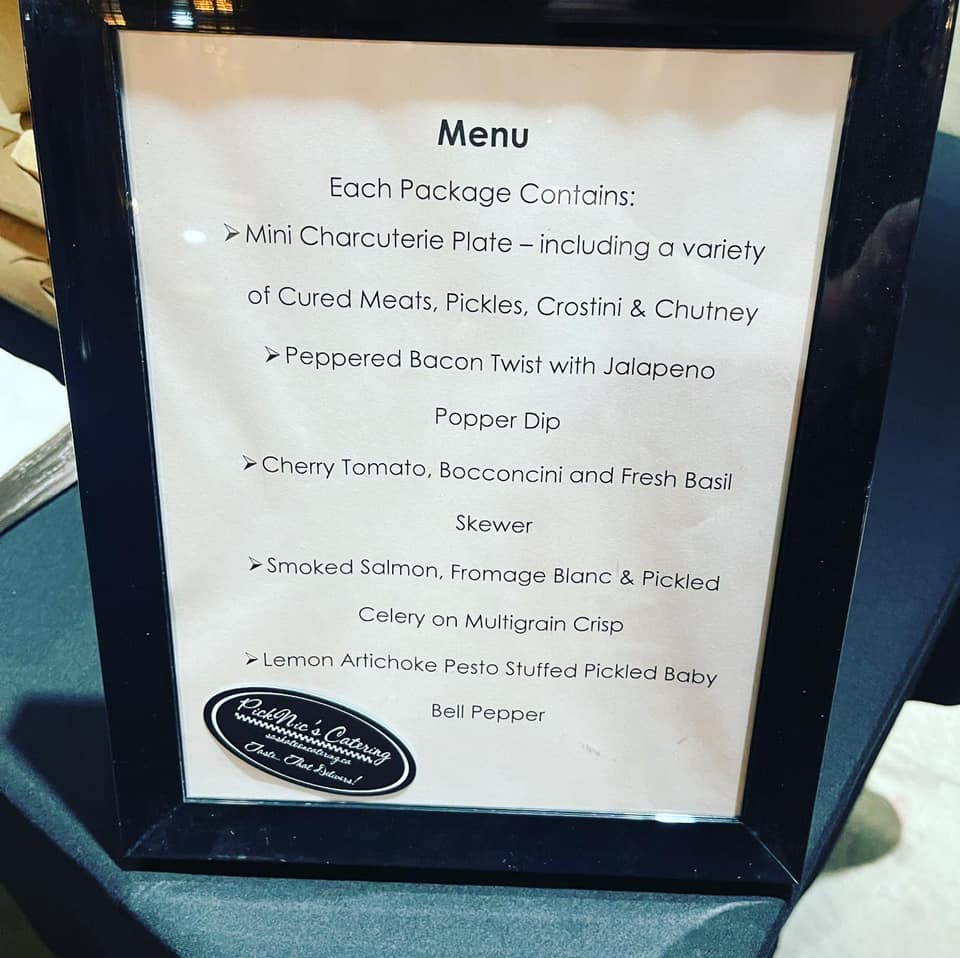 Menu
Each Package Contains:
➢ Mini Charcuterie Plate – including a variety
of Cured Meats, Pickles, Crostini & Chutney
➢ Peppered Bacon Twist with Jalapeno
Popper Dip
➢ Cherry Tomato, Bocconcini and Fresh Basil
Skewer
➢ Smoked Salmon, Fromage Blanc & Pickled
Celery on Multigrain Crisp
➢ Lemon Artichoke Pesto Stuffed Pickled Baby
Bell Pepper
PickNic's Catering
saskatooncatering.ca
Taste That Delivers!